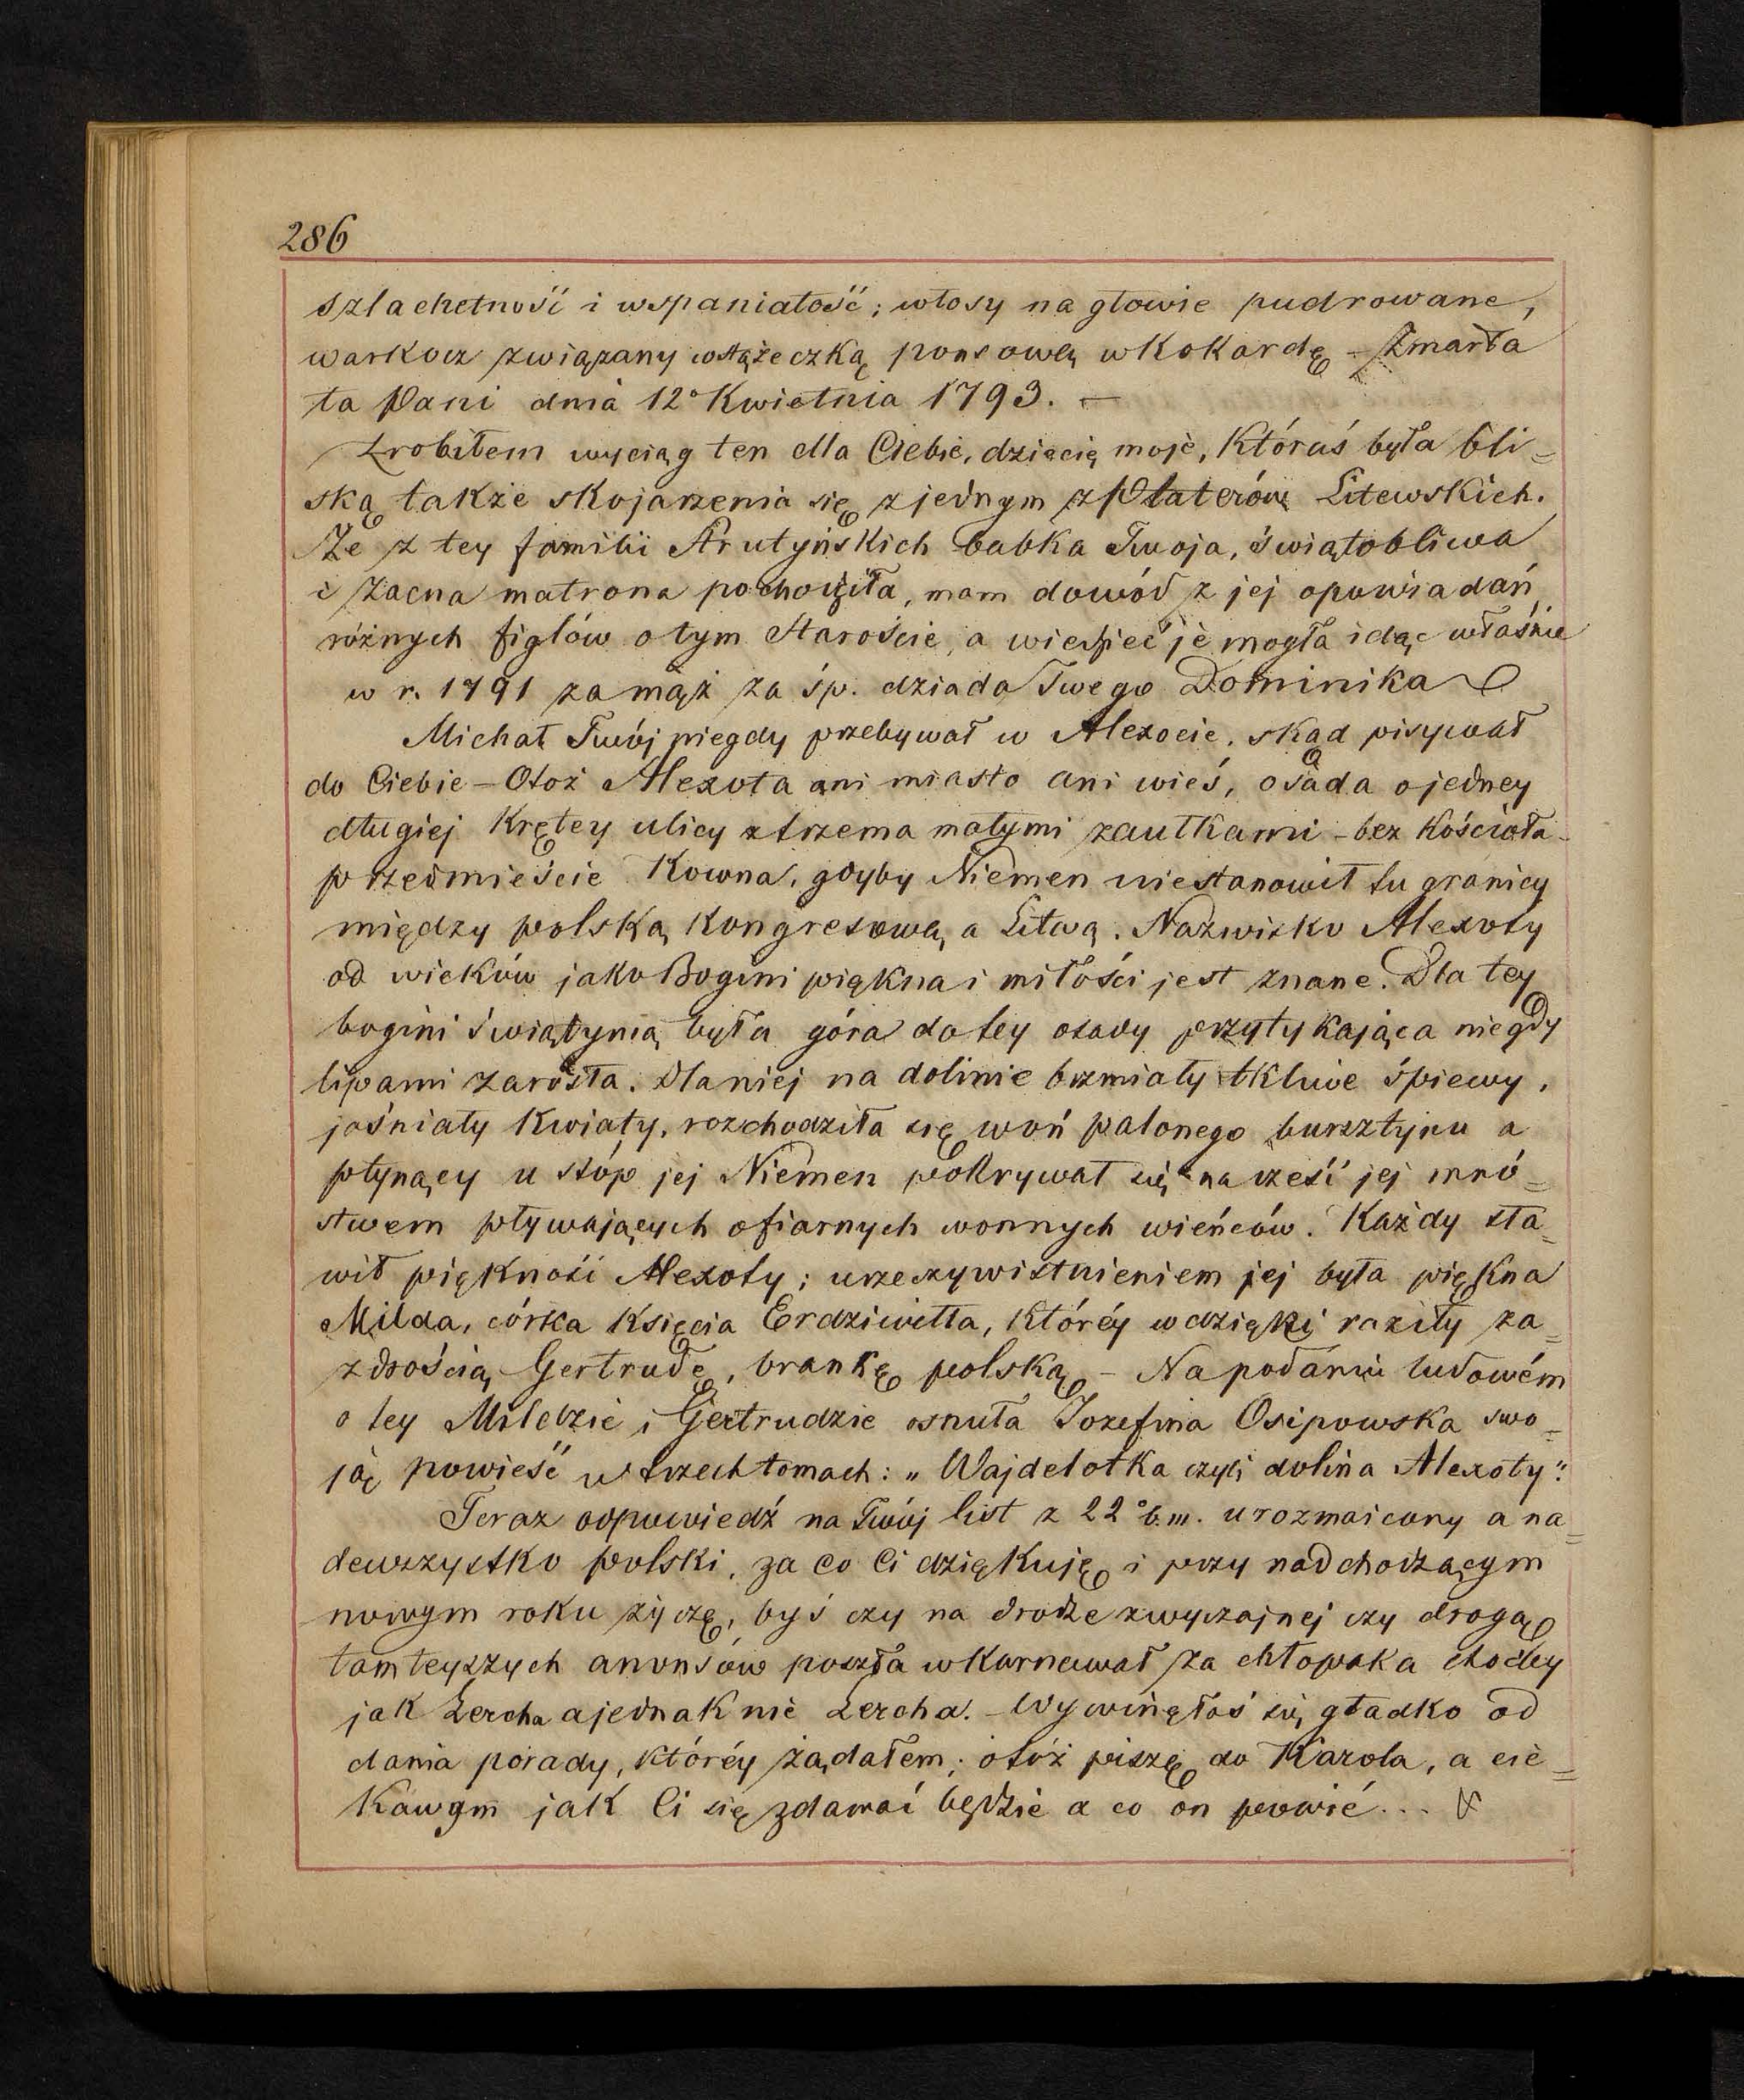 286
szlachetność i wspaniałość; włosy na głowie pudrowane,
warkocz związany wstążeczką ponsową w kokardę – Zmarła
ta Pani dnia 12° Kwietnia 1793. –
Zrobiłem wyciąg ten dla Ciebie, dziecię moje, któraś była bli=
ską także skojarzenia się z jednym z Platerów Litewskich.
Że z tey familii Strutyńskich babka Twoja, świątobliwa
i zacna matrona pochodziła, mam dowód z jej opowiadań
różnych figlów o tym Staroście, a wiedzieć je mogła idąc właśnie
w r. 1791 za mąż za śp. dziada Twego Dominika
Michał Twój niegdy przebywał w Alexocie, skąd pisywał
do Ciebie – Otoż Alexota ani miasto ani wieś, osada o jedney
długiej krętey ulicy z trzema małymi zaułkami – bez kościoła –
przedmieście Kowna, gdyby Niemen nie stanowił tu granicy
między polską kongresową a Litwą. Nazwisko Alexoty
od wieków jako Bogini piękna i miłości jest znane. Dla tey
bogini świątynią była góra do tey osady przytykająca niegdy
lipami zarosła. Dla niej na dolinie brzmiały tkliwe śpiewy,
jaśniały kwiaty, rozchodziła się woń palonego bursztynu a
płynący u stóp jej Niemen pokrywał się na cześć jej mnó=
stwem pływających ofiarnych wonnych wieńców. Każdy sła=
wił piękność Alexoty; urzeczywistnieniem jej była piękna
Milda, córka Księcia Erdziwiłła, któréy wdzięki raziły za=
zdrością Gertrudę, brankę polską – Na podaniu ludowém
o tey Mildzie i Gertrudzie osnuła Jozefina Osipowska swo=
ją powieść w trzech tomach: „Wajdelotka czyli dolina Alexoty".
Teraz odpowiedź na Twój list z 22° b.m. urozmaicony a na=
dewszystko polski, za co Ci dziękuję i przy nadchodzącym
nowym roku życzę, byś czy na drodze zwyczajnej czy drogą
tamteyszych anonsów poszła w karnawał za chłopaka choćby
jak Lercha a jednak nie Lercha. – Wywinęłaś się gładko od
dania porady, któréy żądałem; otóż piszę do Karola, a cie=
kawym jak Ci się zdawać będzie a co on powié...